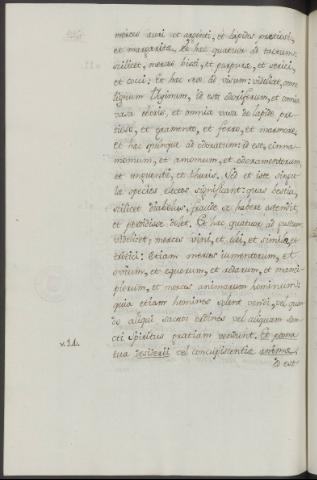 merces auri et argenti, et lapidis pretiosi,
et margaritæ. Et hæc quatuor ad tactum:
scilicet, merces bissi, et purpuræ, et serici,
et cocci: Et hæc sex ad visum: videlicet, omne
lignum Thyinum, id est odoriferum, et omnia
vasa eboris, et omnia vasa de lapide pre-
tioso, et æramento, et ferro, et marmore,
et hæc quinque ad odoratum: id est, cinna-
momum, et amomum, et odoramentorum,
et unguenti, et thuris. Sed et istæ singu-
læ species significant: quas bestia,
scilicet diabolus, fraude se habere ostendit,
et perdidisse dolet. Et hæc quatuor ad gustum
videlicet; merces vini, et olei, et similæ, et
tritici: Etiam merces iumentorum, et
ovium, et equorum, et redarum, et manci-
piorum, et merces animarum hominum:
quia etiam homines solent vendi, vel quan-
do aliqui sacros ordines vel aliquam San-
cti Spiritus gratiam vendunt. Et poma
v. 14. tua desiderii vel concupiscentiæ animæ:
id est